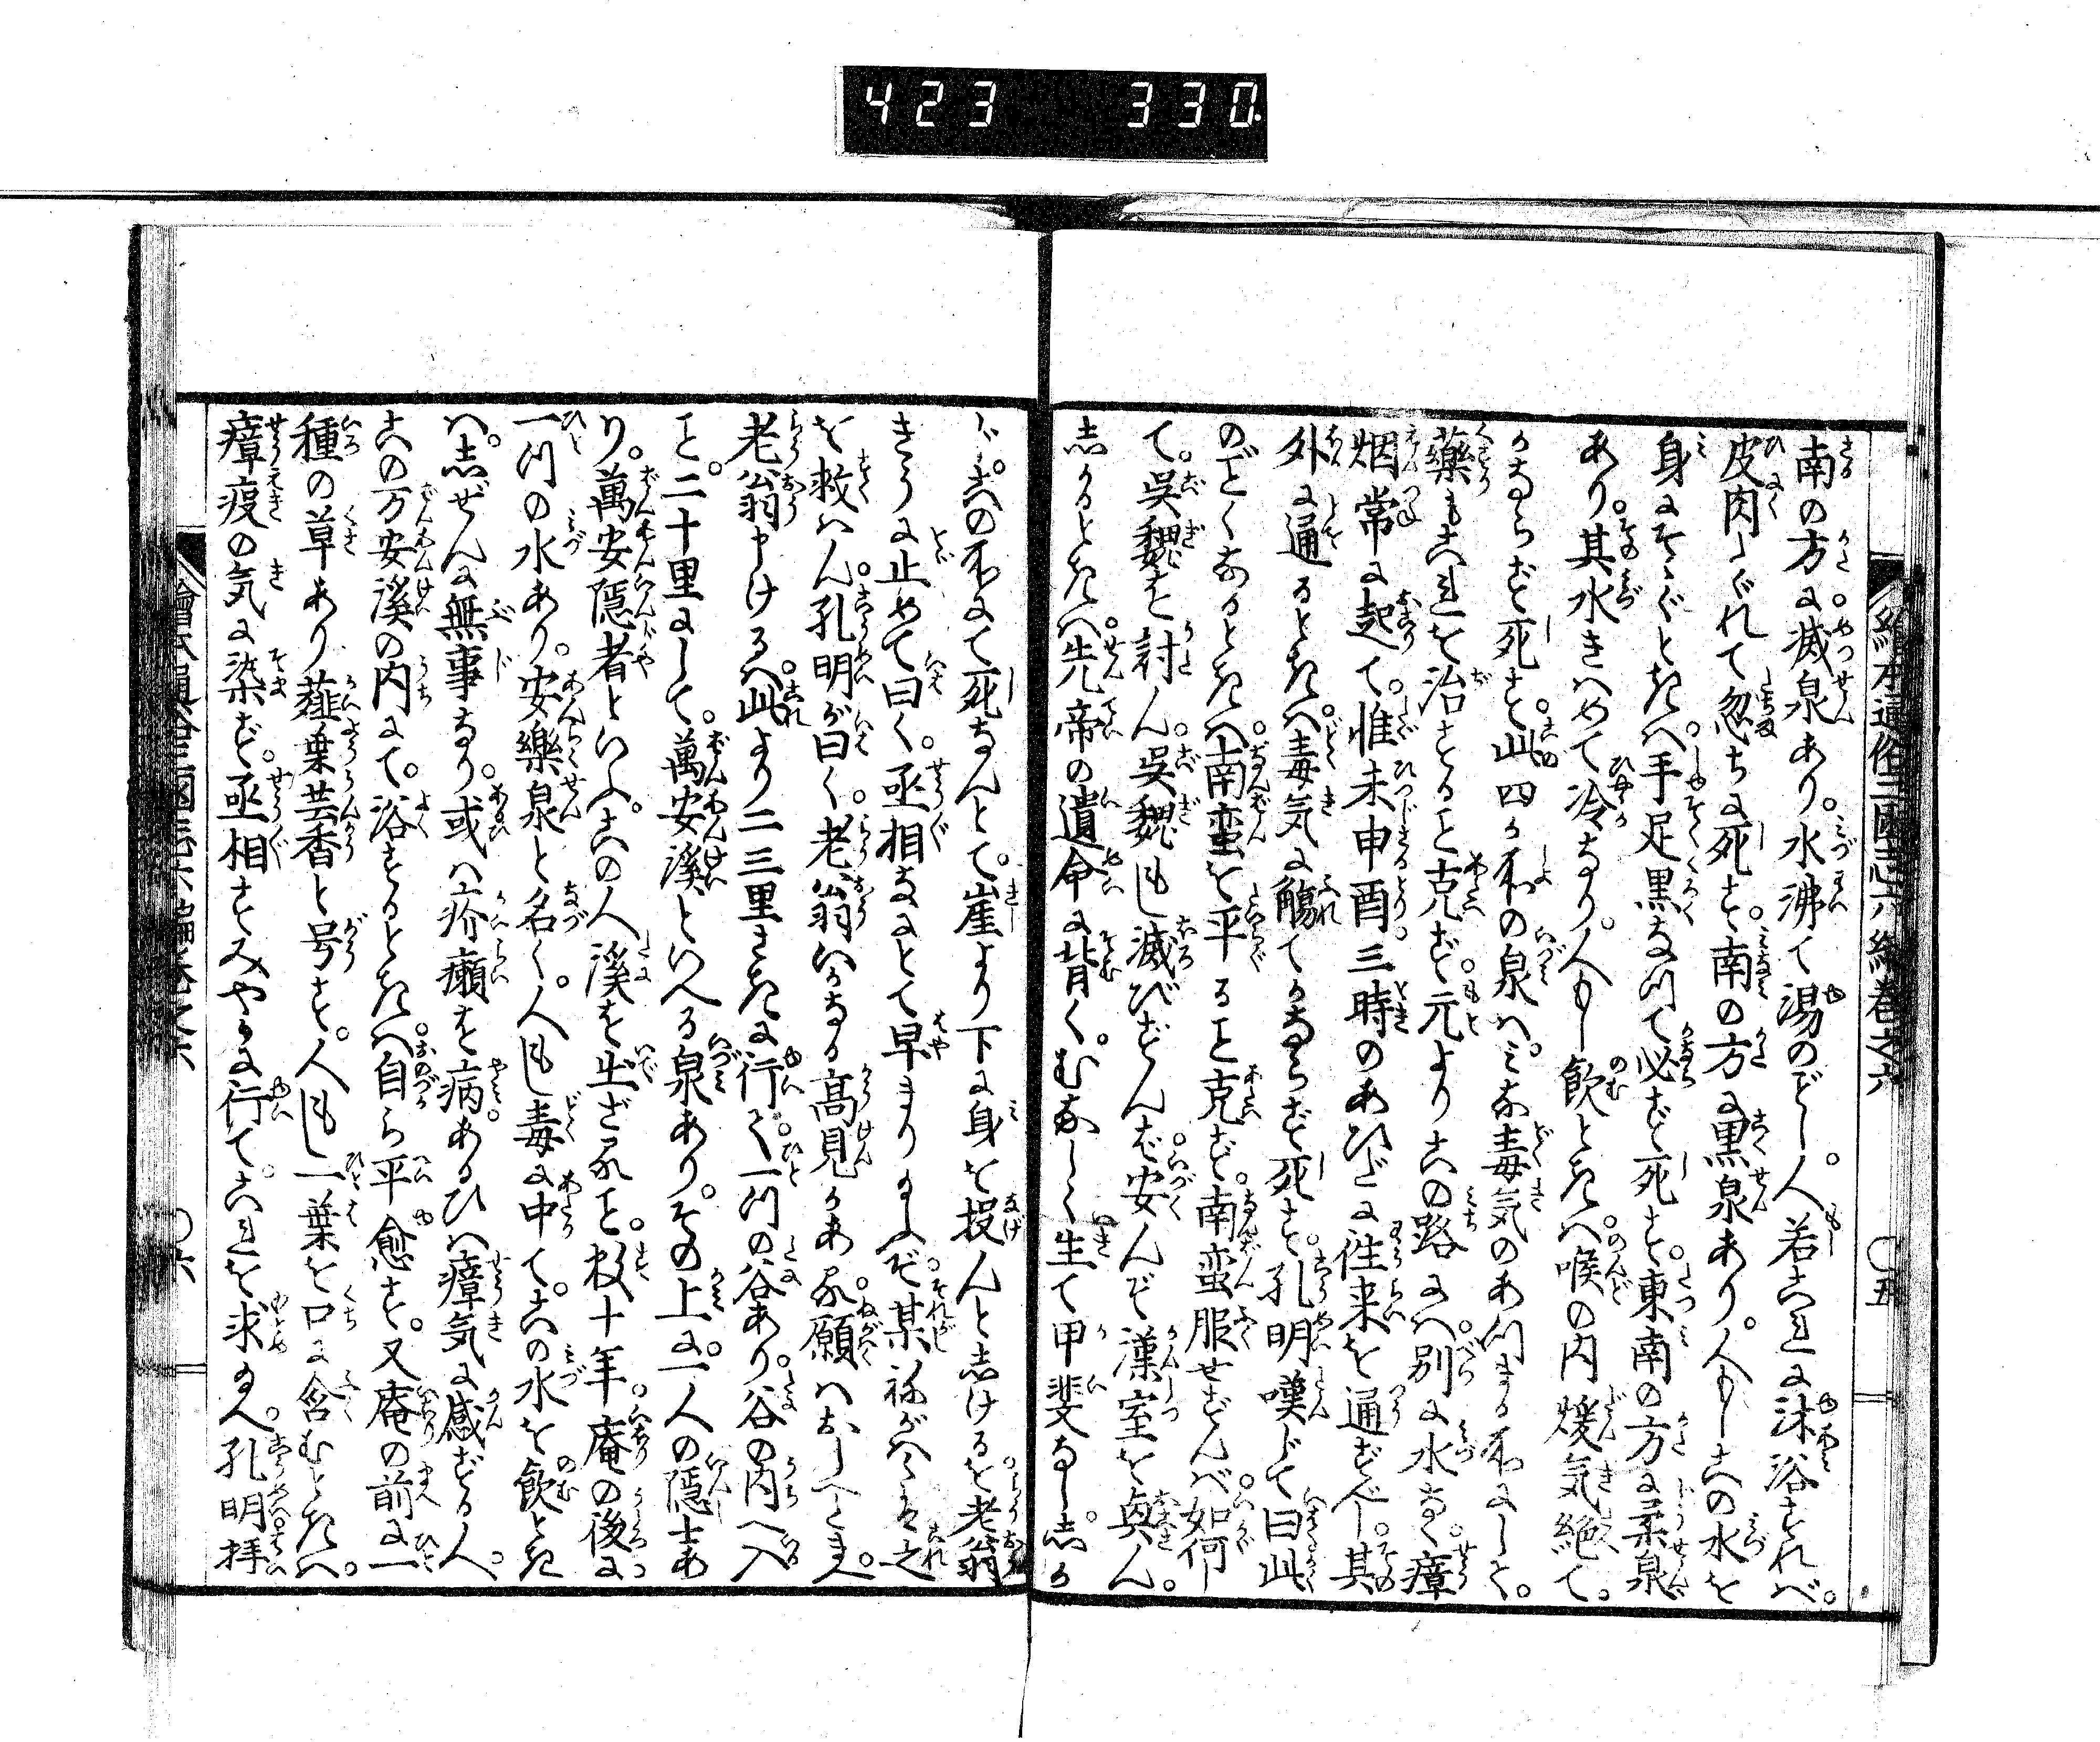 423 330
繪本通俗三國志六編卷之六 〇五
南の方に滅泉あり。水沸て湯のごし。人若これに沐浴すれバ。
皮肉たゞれて忽ちに死す。南の方に黒泉あり。人もしこの水を
身にそゝぐときハ。手足黒なつて必ず死す。東南の方に柔泉
あり。其水きハめて冷なり。人もし飲ときハ。喉の内煖気絶て。
かならず死す。此四か所の泉ハ。ミな毒気のあつまる所にして。
藥もこれを治すること克ず。元よりこの路にハ。別に水なく。瘴
烟常に起て。惟未申酉。三時のあひだに往来を通ずべし。其
外に通るときハ。毒気に觸てかならず死す。孔明嘆じて曰此
のごとくなるときハ。南蛮を平ること克ず。南蛮服せずんバ。如何し
て。呉魏を討ん。呉魏もし滅びずんバ。安んぞ漢室を興ん。
志かるときハ。先帝の遺命に背く。むなしく生て甲斐なし。志か
じ。この所にて死なんとて。崖より下に身を投んと志けるを。老翁
きうに止めて曰く。丞相なにとて早まりまふぞ。某ねがハくハ之
を救ハん。孔明が曰く。老翁いかなる高見かある。願ハおしへたまへ。
老翁申けるハ。此より二三里さきに行て。一つの谷あり。谷の内へ入
こと。二十里にして。萬安溪といへる泉あり。その上に。一人の隱士あ
り。萬安隱者といふ。この人溪を出ざること。数十年。庵の後に
一つの水あり。安樂泉と名く。人もし毒に中て。この水を飲とき
ハ。志ぜんに無事なり。或ハ疥癩を病あるひハ瘴気に感ずる人。
この万安溪の内にて。浴するときハ。自ら平愈す。又庵の前に一
種の草あり薤葉芸香と号す。人もし一葉を口に含むときハ。
瘴疫の気に染ず。丞相すみやかに行て。これを求まへ。孔明拝
繪本通俗三國志六編卷之六 〇六